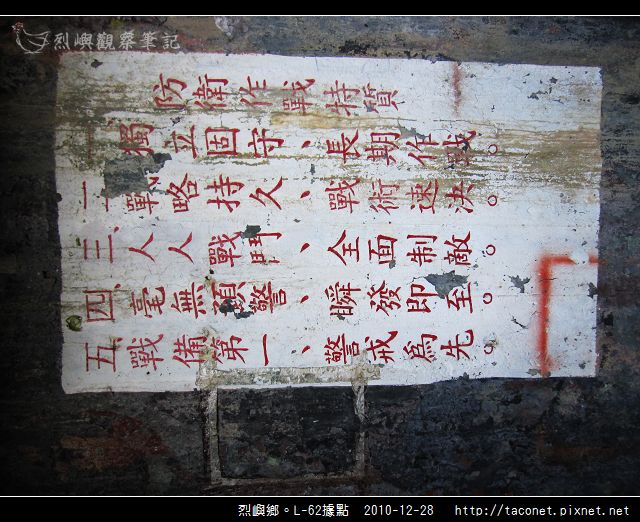 烈嶼觀察筆記
防衛作戰特質
一、獨立固守、長期作戰。
二、戰略持久、戰術速決。
三、人人戰鬥、全面制敵。
四、毫無預警、瞬發即至。
五、戰備第一、警戒為先。
烈嶼鄉。L-62據點 2010-12-28 http://taconet.pixnet.net